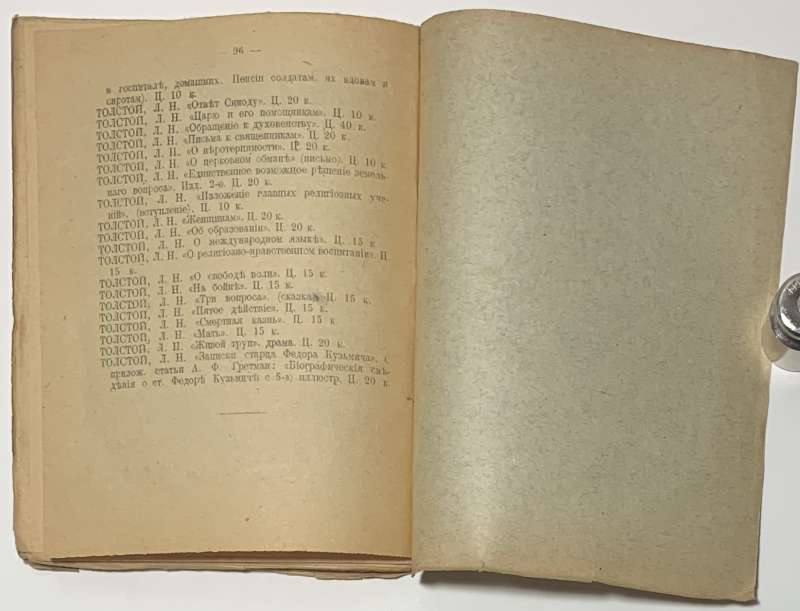 — 96 —
в госпиталѣ, домашних. Пенсіи солдатам, их вдовам и
сиротам). Ц. 10 к.
ТОЛСТОЙ, Л. Н. «Отвѣт Синоду». Ц. 20 к.
ТОЛСТОЙ, Л. Н. «Царю и его помощникам». Ц. 10 к.
ТОЛСТОЙ, Л. Н. «Обращеніе к духовенству». Ц. 40 к.
ТОЛСТОЙ, Л. Н. «Письма к священникам». Ц. 20 к.
ТОЛСТОЙ, Л. Н. «О вѣротерпимости». Ц. 20 к.
ТОЛСТОЙ, Л. Н. «О церковном обманѣ» (письмо). Ц. 10 к.
ТОЛСТОЙ, Л. Н. «Единственное возможное рѣшеніе земель-
наго вопроса». Изд. 2-е. Ц. 20 к.
ТОЛСТОЙ, Л. Н. «Изложеніе главных религіозных уче-
ній». (вступленіе). Ц. 10 к.
ТОЛСТОЙ, Л. Н. «Женщинам». Ц. 20 к.
ТОЛСТОЙ, Л. Н. «Об образованіи». Ц. 20 к.
ТОЛСТОЙ, Л. Н. О международном языкѣ». Ц. 15 к.
ТОЛСТОЙ, Л. Н. «О религіозно-нравственном воспитаніи». Ц.
15 к.
ТОЛСТОЙ, Л. Н. «О свободѣ воли». Ц. 15 к.
ТОЛСТОЙ, Л. Н. «На бойнѣ». Ц. 15 к.
ТОЛСТОЙ, Л. Н. «Три вопроса». (сказка) Ц. 15 к.
ТОЛСТОЙ, Л. Н. «Пятое дѣйствіе». Ц. 15 к.
ТОЛСТОЙ, Л. Н. «Смертная казнь». Ц. 15 к.
ТОЛСТОЙ, Л. Н. «Мать». Ц. 15 к.
ТОЛСТОЙ, Л. Н. «Живой труп», драма. Ц. 20 к.
ТОЛСТОЙ, Л. Н. «Записки старца Федора Кузьмича». С
прилож. статьи А. Ф. Гретман: «Біографическія свѣ-
дѣнія о ст. Федорѣ Кузьмичѣ с 5-ю иллюстр. Ц. 20 к.